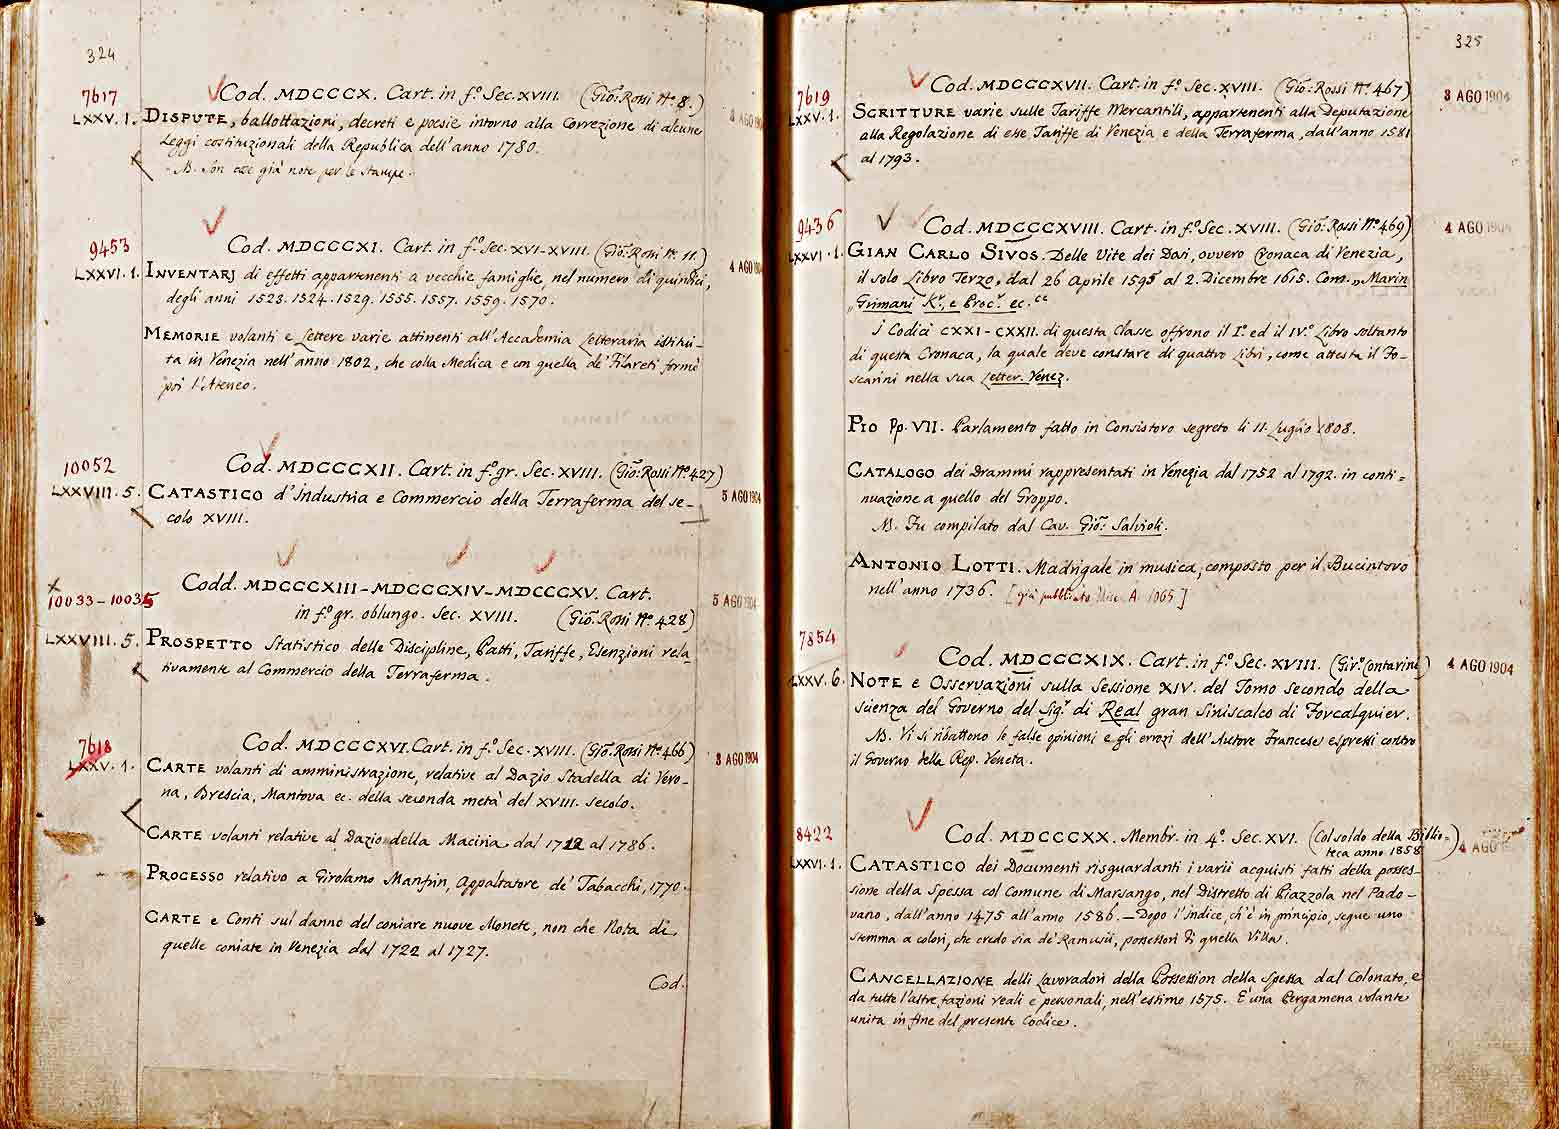 324
7617
Cod. MDCCCX. Cart. in fº. Sec. XVIII. (Gio: Rossi Nº. 8.)
LXXV. 1. DISPUTE, ballottazioni, decreti e poesie intorno alla Correzione di alcune
Leggi costituzionali della Republica dell'anno 1780.
NB. Son cose già note per le stampe.
9453
Cod. MDCCCXI. Cart. in fº. Sec. XVI-XVIII. (Gio: Rossi Nº. 11.)
4 AGO 1904
LXXVI. 1. INVENTARJ di effetti appartenenti a vecchie famiglie, nel numero di quindici,
degli anni 1523. 1524. 1529. 1555. 1557. 1559. 1570.
MEMORIE volanti e Lettere varie attinenti all'Accademia Letteraria istitui-
ta in Venezia nell'anno 1802, che colla Medica e con quella de' Filareti formò
poi l'Ateneo.
10052
Cod. MDCCCXII. Cart. in fº. gr. Sec. XVIII. (Gio: Rossi Nº. 427)
LXXVIII. 5. CATASTICO d'Industria e Commercio della Terraferma del se-
5 AGO 1904
colo XVIII.
Codd. MDCCCXIII-MDCCCXIV-MDCCCXV. Cart.
10033-10035
5 AGO 1904
in fº. gr. oblungo. Sec. XVIII. (Gio: Rossi Nº. 428)
LXXVIII. 5. PROSPETTO Statistico delle Discipline, Patti, Tariffe, Esenzioni rela-
tivamente al Commercio della Terraferma.
7618
Cod. MDCCCXVI. Cart. in fº. Sec. XVIII. (Gio: Rossi Nº. 466)
3 AGO 1904
LXXV. 1. CARTE volanti di amministrazione, relative al Dazio Stadella di Vero-
na, Brescia, Mantova ec. della seconda metà del XVIII. secolo.
CARTE volanti relative al Dazio della Macina dal 1712 al 1786.
PROCESSO relativo a Girolamo Manfrin, Appaltatore de' Tabacchi, 1770.
CARTE e Conti sul danno del coniare nuove Monete, non che Nota di
quelle coniate in Venezia dal 1722 al 1727.
Cod.
325
7619
Cod. MDCCCXVII. Cart. in fº. Sec. XVIII. (Gio: Rossi Nº. 467)
3 AGO 1904
LXXV. 1. SCRITTURE varie sulle Tariffe Mercantili, appartenenti alla Deputazione
alla Regolazione di esse Tariffe di Venezia e della Terraferma, dall'anno 1581
al 1793.
9436
Cod. MDCCCXVIII. Cart. in fº. Sec. XVIII. (Gio: Rossi Nº. 469)
4 AGO 1904
LXXVI. 1. GIAN CARLO SIVOS. Delle Vite dei Dosi, ovvero Cronaca di Venezia,
il solo Libro Terzo, dal 26 Aprile 1595 al 2. Dicembre 1615. Com. „Marin
„Grimani Kr. e Procr. ec. ce
I Codici CXXI-CXXII. di questa Classe offrono il Iº. ed il IVº. Libro soltanto
di questa Cronaca, la quale deve constare di quattro Libri, come attesta il Fo-
scarini nella sua Letter. Venez.
PIO Pp. VII. Parlamento fatto in Consistoro segreto li 11. Luglio 1808.
CATALOGO dei Drammi rappresentati in Venezia dal 1752 al 1792. in conti=
nuazione a quello del Groppo.
NB. Fu compilato dal Cav. Gio: Salvioli.
ANTONIO LOTTI. Madrigale in musica, composto per il Bucintoro
nell'anno 1736. [già pubblicato Misc. A. 1065]
7854
Cod. MDCCCXIX. Cart. in fº. Sec. XVIII. (Gir: Contarini)
4 AGO 1904
LXXV. 6. NOTE e Osservazioni sulla Sessione XIV. del Tomo secondo della
scienza del Governo del Sigr. di Real gran Siniscalco di Forcalquier.
NB. Vi si ribattono le false opinioni e gli errori dell'Autore Francese espressi contro
il Governo della Rep. Veneta.
8422
Cod. MDCCCXX. Membr. in 4º. Sec. XVI. (Col soldo della Biblio=
teca anno 1858)
4 AGO
LXXVI. 1. CATASTICO dei Documenti risguardanti i varii acquisti fatti della posses-
sione della Spessa col Comune di Marsango, nel Distretto di Piazzola nel Pado-
vano, dall'anno 1475 all'anno 1586. — Dopo l'indice, ch'è in principio, segue uno
stemma a colori, che credo sia de' Ramusii, possessori di quella Villa.
CANCELLAZIONE delli Lavoradori della Possession della Spessa dal Colonato, e
da tutte l'altre fazioni reali e personali, nell'estimo 1575. È una Pergamena volante
unita in fine del presente Codice.